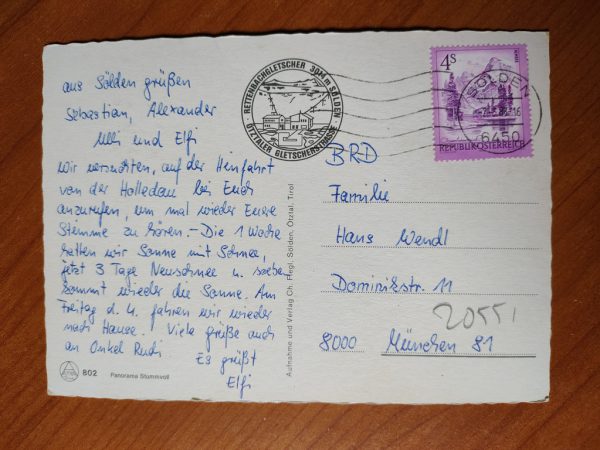 aus Sölden grüßen
Sebastian, Alexander
Ulli und Elfi
Wir versuchten, auf der Herfahrt
von der Holledau bei Euch
anzurufen, um mal wieder Eure
Stimme zu hören. - Die 1 Woche
hatten wir Sonne mit Schnee,
jetzt 3 Tage Neuschnee u. soeben
kommt wieder die Sonne. Am
Freitag d. 4. fahren wir wieder
nach Hause. Viele Grüße auch
an Onkel Rudi
Es grüßt
Elfi
802 Panorama Stummvoll
Aufnahme und Verlag Ch. Riegl, Sölden, Ötztal, Tirol
RETTENBACHGLETSCHER SÖLDEN
ÖTZTALER GLETSCHERSTRASSE
4S
REPUBLIK ÖSTERREICH
SÖLDEN
6450
BRD
Familie
Hans Wendl
Dominikstr. 11
8000 München 81